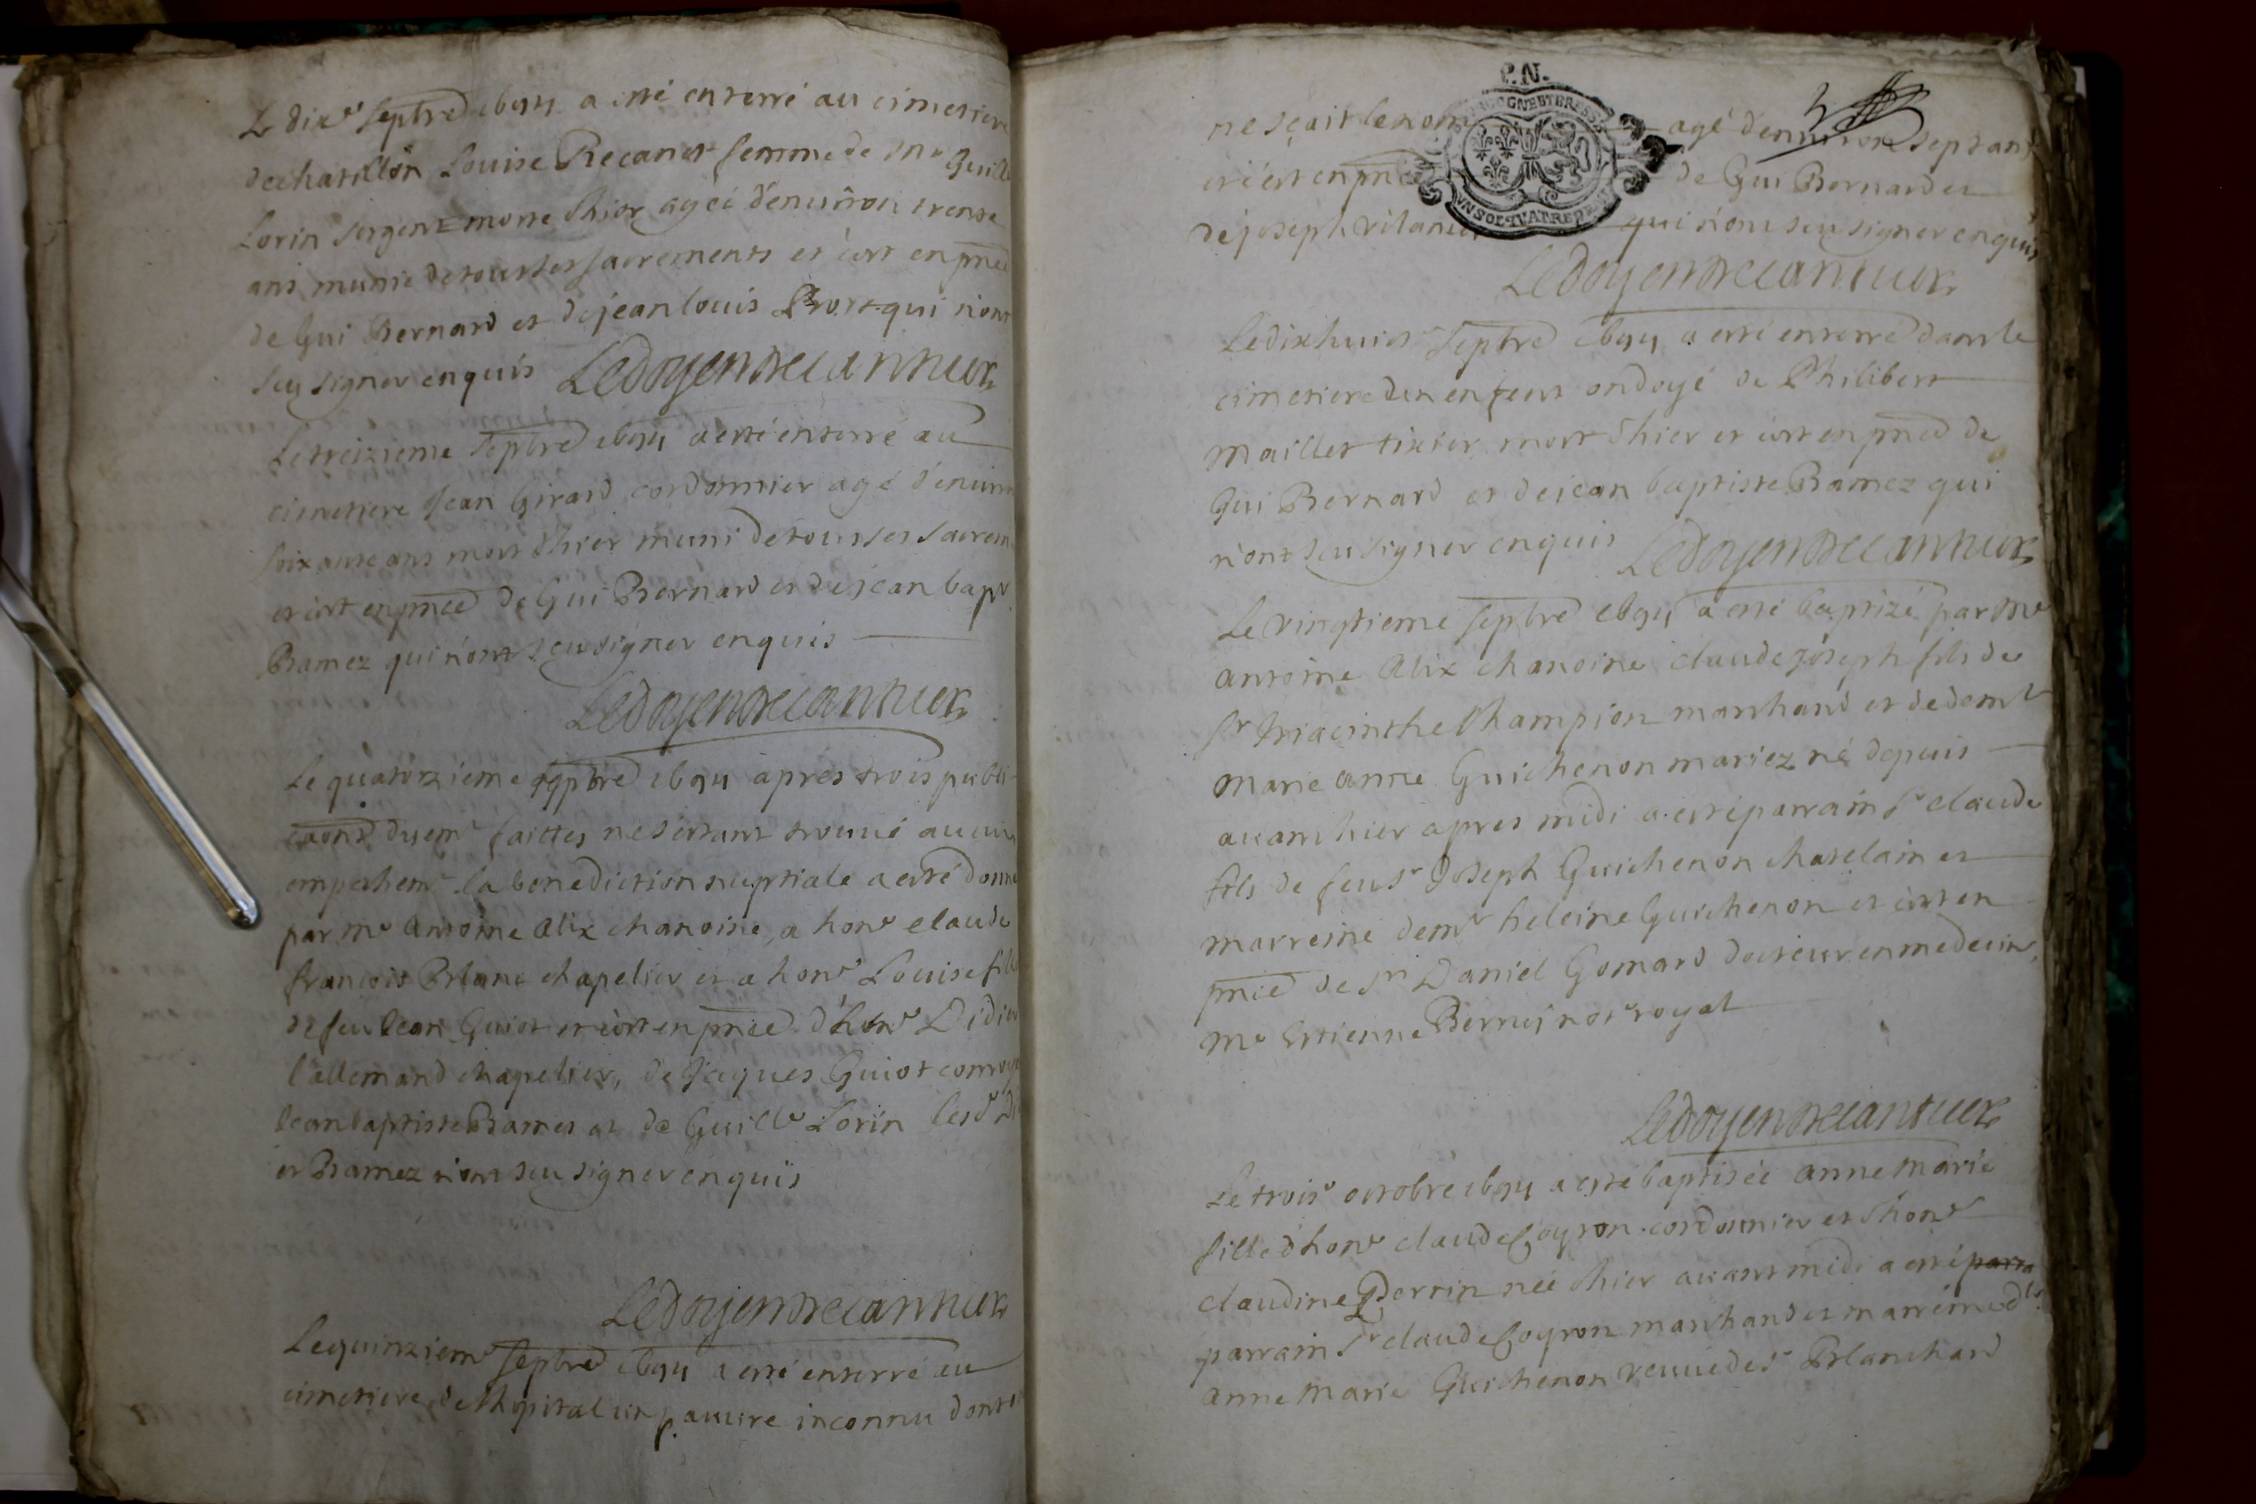 Le dixe septbre 1691 a esté enterré au cimetiere
de chatillon Louise Recanet femme de Me Guill
Lorin sergent morte d'hier agée d'environ trente
ans munie de tous ses sacrements et c'est en pnce
de Gui Bernard et de jean louis qui n'ont
seu signer enquis Ledoyen Decannuex
Le treizieme septbre 1691 a esté enterré au
cimetiere Jean Girard cordonnier agé d'envir
soixante ans mort d'hier muni de tous ses sacrem
et c'est en pnce de Gui Bernard et de jean bapt
Bamez qui n'ont seu signer enquis
Ledoyen Decannuex
Le quatorzieme septbre 1691 après trois publi
caons duem faittes ne s'estant trouvé aucun
empeschemt la benediction nuptiale a esté donné
par Me Antoine Alix chanoine, a hone claude
françois Blanc chapelier et a hone Louise fill
de feu Jean Guiot et c'est en pnce d'hone Didier
l'allemand chapelier, de Jaques Guiot conroye
Jean baptiste Bamez et de Guille Lorin lesd
et Bamez n'ont seu signer enquis
Ledoyen Decannuex
Le quinziem septbre 1691 a esté enterré au
cimetiere de l'hopital un pauvre inconnu dont
P.N.
ne sçait le nom agé d'environ septant
et c'est en pnce de Gui Bernard et
de joseph qui n'ont seu signer enquis
Ledoyen Decannuex
Le dixhuit septbre 1691 a esté enterré dans le
cimetiere un enfent ondoyé de Philibert
Maillet tixier mort d'hier et c'est en pnce de
Gui Bernard et de jean baptiste Bamez qui
n'ont seu signer enquis Ledoyen Decannuex
Le vingtieme septbre 1691 a esté baptizé par Me
Antoine Alix chanoine claude joseph fils de
sr hiacinthe Champion marchand et de demle
Marie anne Guichenon mariez né depuis
avanthier apres midi a esté parrain sr claude
fils de feu sr Joseph Guichenon chatelain et
marreine demle heleine Guichenon et c'est en
pnce de sr Daniel Gomard docteur en medecine,
Me Estienne not royal
Ledoyen Decannuex
Le trois octobre 1691 a esté baptisée anne Marie
fille d'hone claude Goyron cordonnier et d'hone
claudine Perrin née d'hier avant midi a esté parra
parrain sr claude Goyron marchand et marreine dle
anne Marie Guichenon veuve de sr Blanchard